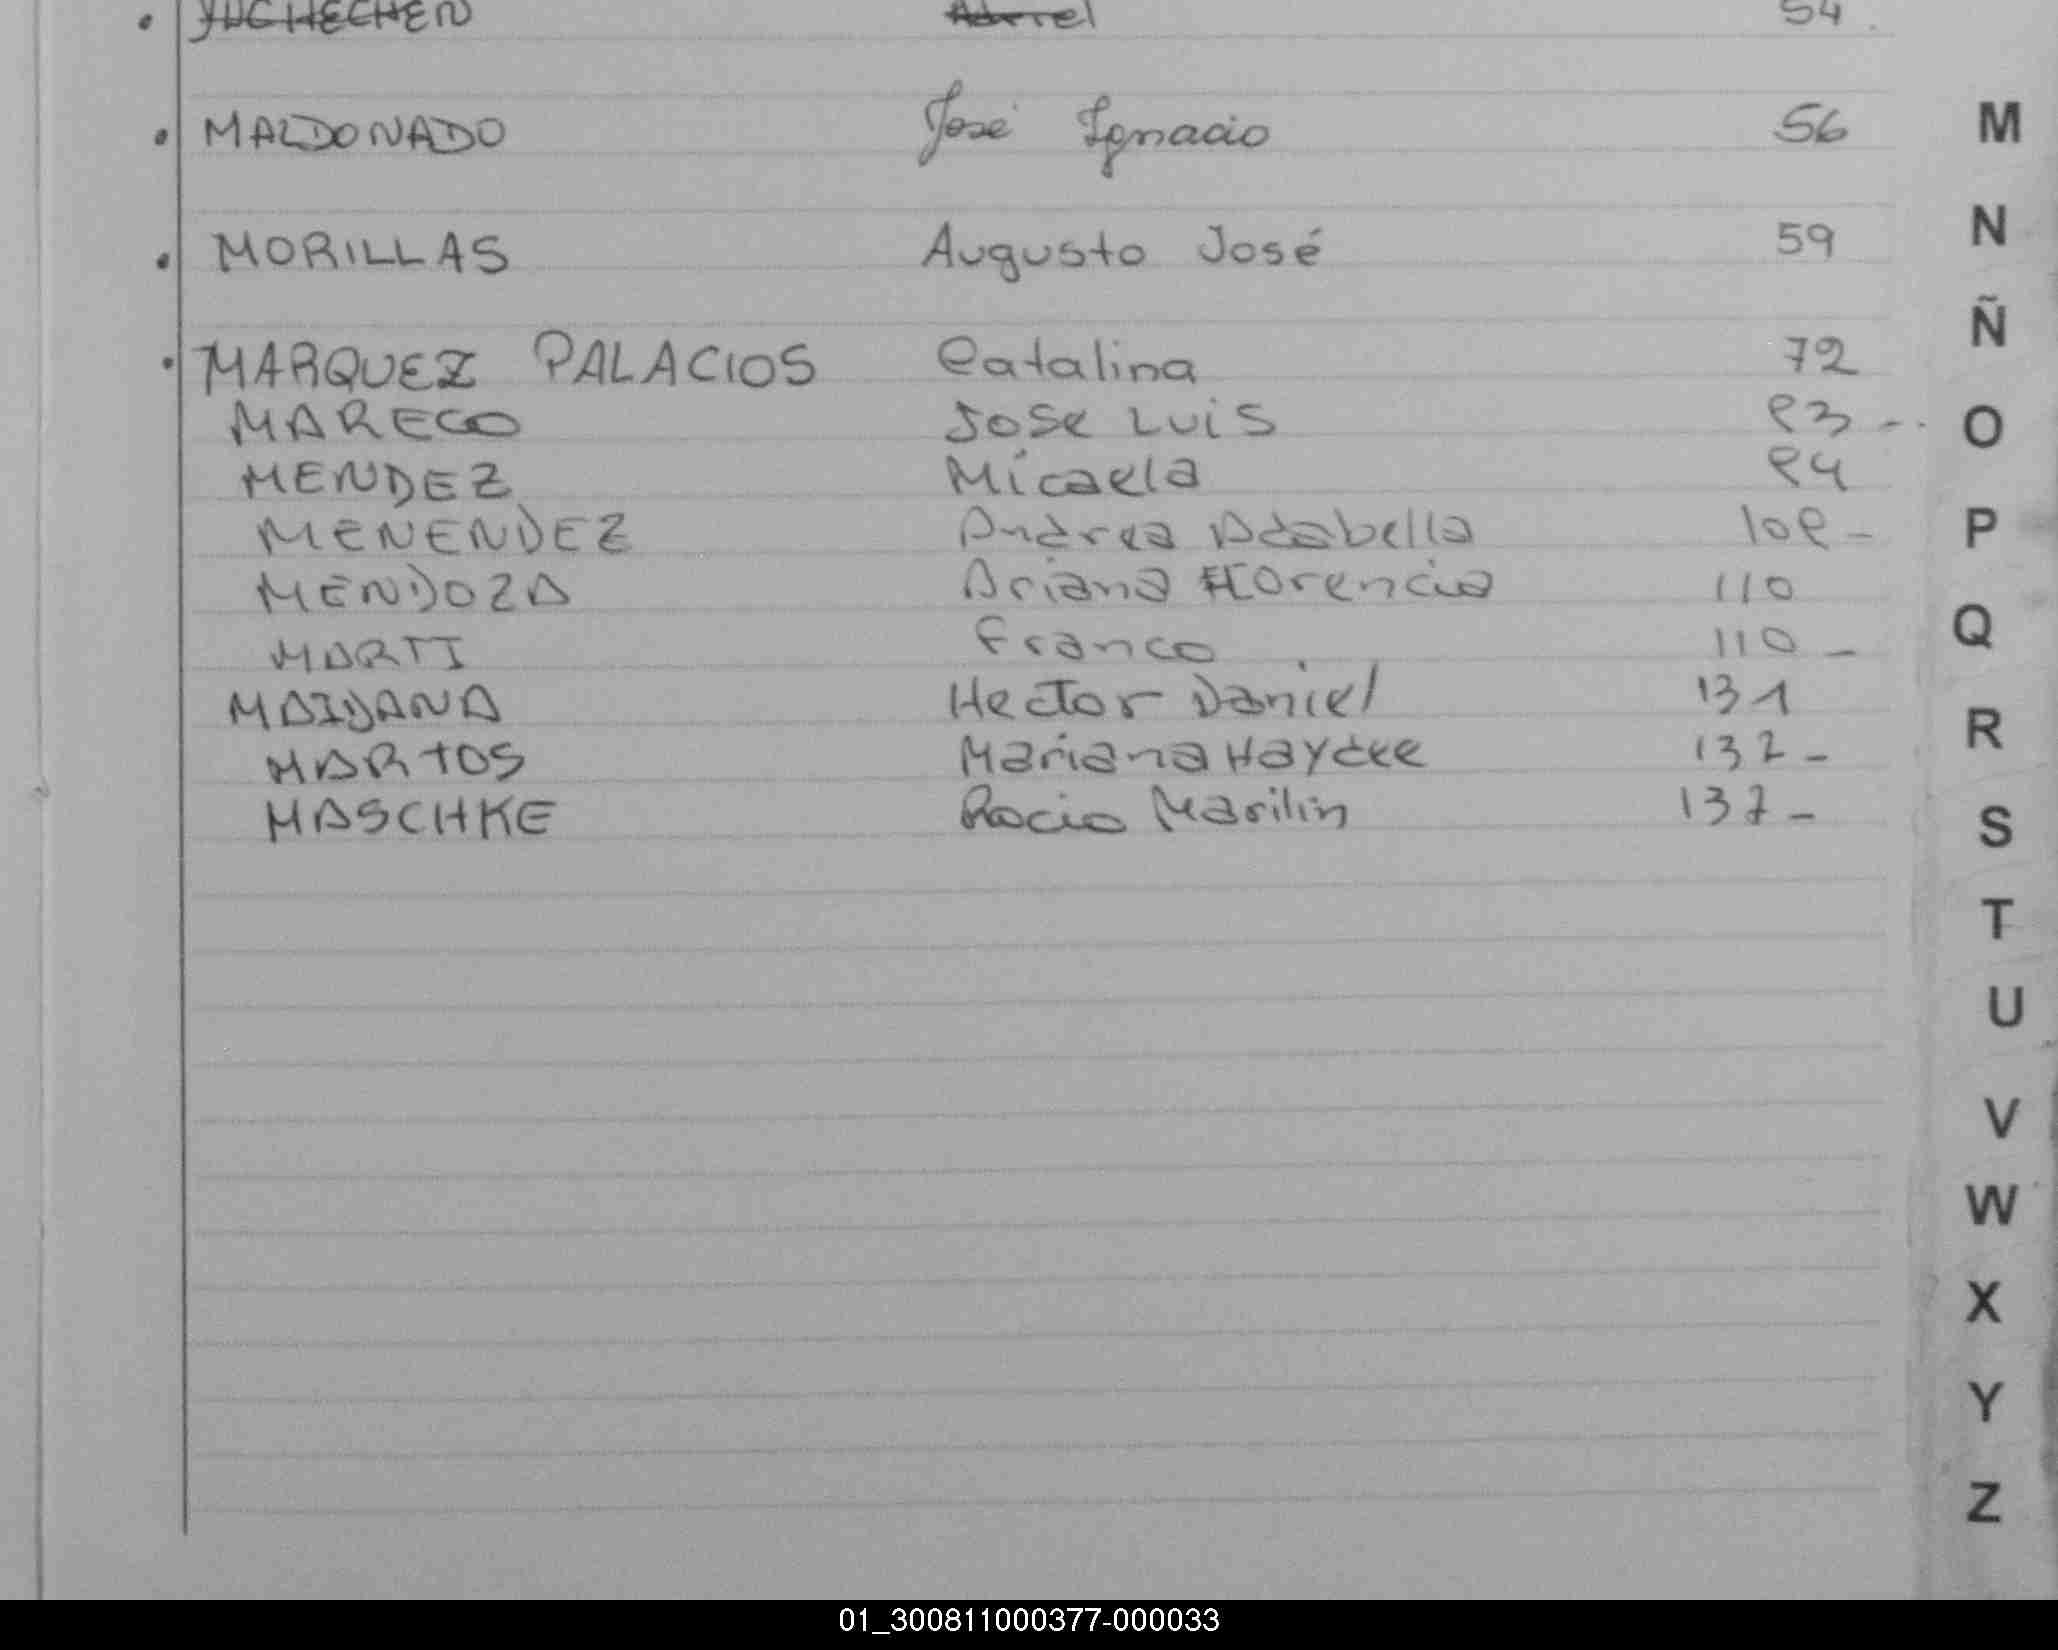 54
MALDONADO José Ignacio 56 M
MORILLAS Augusto José 59 N
Ñ
MARQUEZ PALACIOS Catalina 72
MARECO Jose Luis 83 - O
MENDEZ Micaela 84
MENENDEZ Andrea Adabella 108 - P
MENDOZA Ariana Florencia 110
MARTI Franco 110 - Q
MAIDANA Hector Daniel 131
MARTOS Mariana Haydee 132 - R
MASCHKE Rocio Marilin 137 - S
T
U
V
W
X
Y
Z
01_300811000377-000033